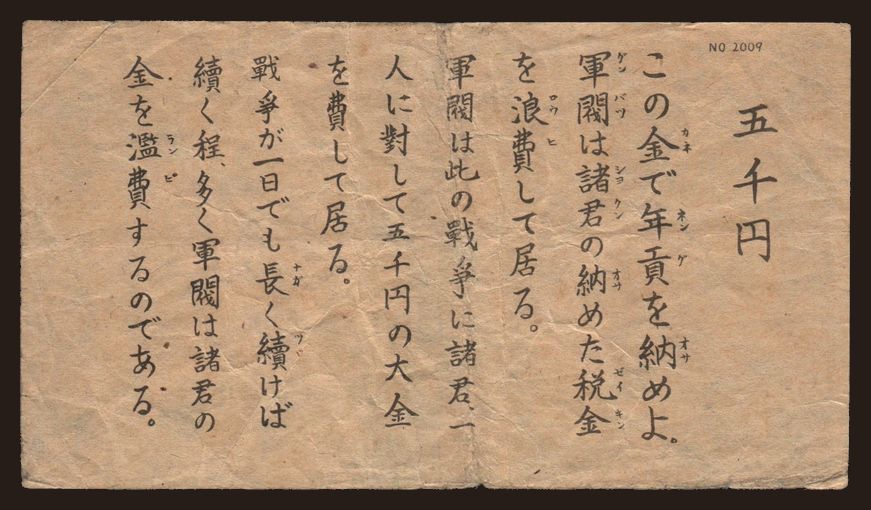 NO 2009
五千円
この金で年貢を納めよ。
軍閥は諸君の納めた税金
を浪費して居る。
軍閥は此の戰爭に諸君、一
人に對して五千円の大金
を費して居る。
戰爭が一日でも長く續けば
續く程、多く軍閥は諸君の
金を濫費するのである。